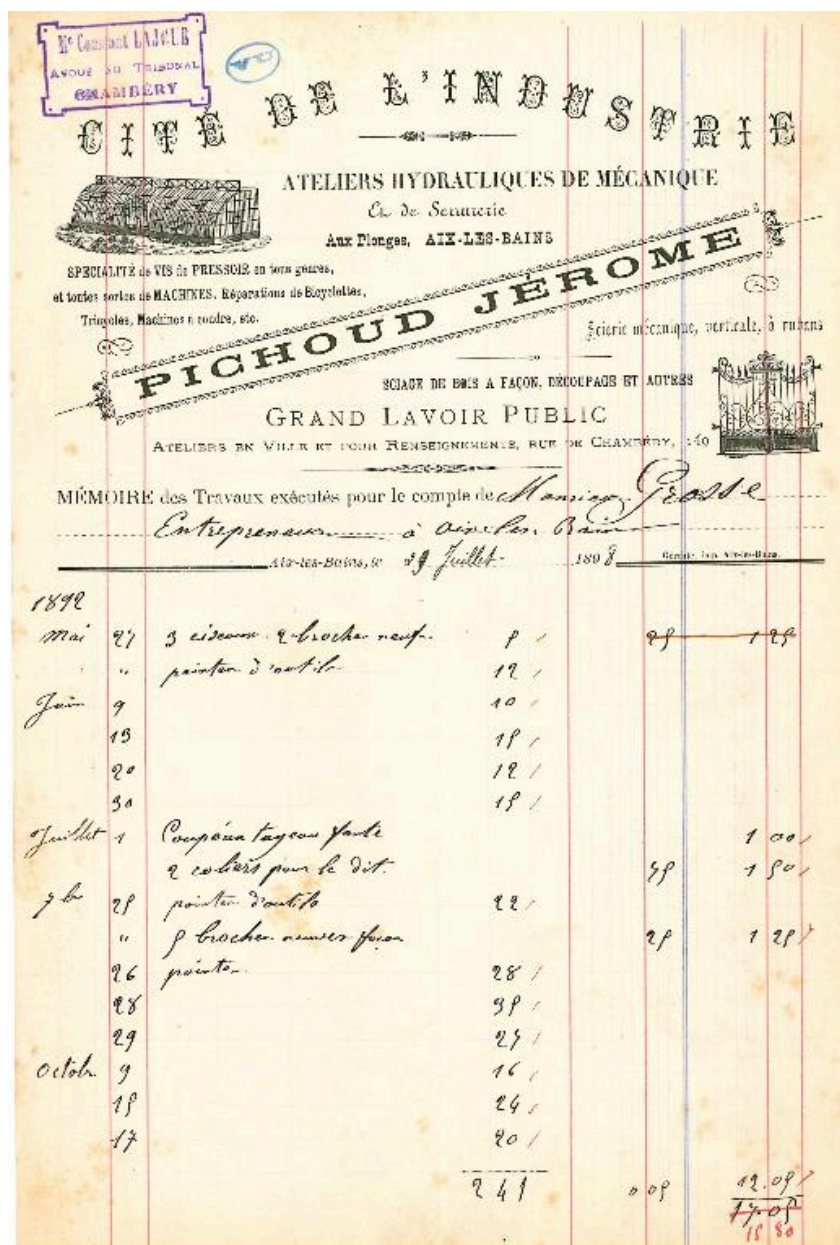 Mᵉ Constant LAJOUE
AVOUÉ AU TRIBUNAL
CHAMBÉRY
CITÉ DE L'INDUSTRIE
ATELIERS HYDRAULIQUES DE MÉCANIQUE
Et de Serrurerie
Aux Plonges, AIX-LES-BAINS
SPÉCIALITÉ de VIS de PRESSOIR en tous genres,
et toutes sortes de MACHINES, Réparations de Bicyclettes,
Tricycles, Machines à coudre, etc.
PICHOUD JÉROME
Scierie mécanique, verticale, à rubans
SCIAGE DE BOIS A FAÇON, DÉCOUPAGE ET AUTRES
GRAND LAVOIR PUBLIC
ATELIERS EN VILLE ET POUR RENSEIGNEMENTS, RUE DE CHAMBÉRY, 149
MÉMOIRE des Travaux exécutés pour le compte de Monsieur Grosse
Entrepreneur à Aix les Bains
Aix-les-Bains, le 29 Juillet 1898
1892
Mai 27 3 ciseaux 2 brocher neuf 5 25 1 25
" pointer d'outils 12
Juin 9 10
13 15
20 12
30 15
Juillet 1 fonte 1 00
2 coliers pour le dit. 75 1 50
7bre 25 pointer d'outils 22
" 5 brocher neuves façon 25 1 25
26 pointer 28
28 35
29 27
Octobr 9 16
15 24
17 20
241 0 05 12.05
17.05
15 80